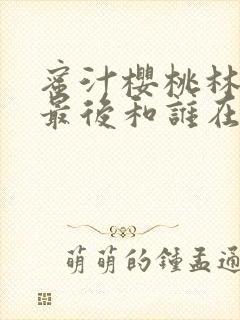 蜜汁櫻桃林
最後和誰在
萌萌的鍾孟通